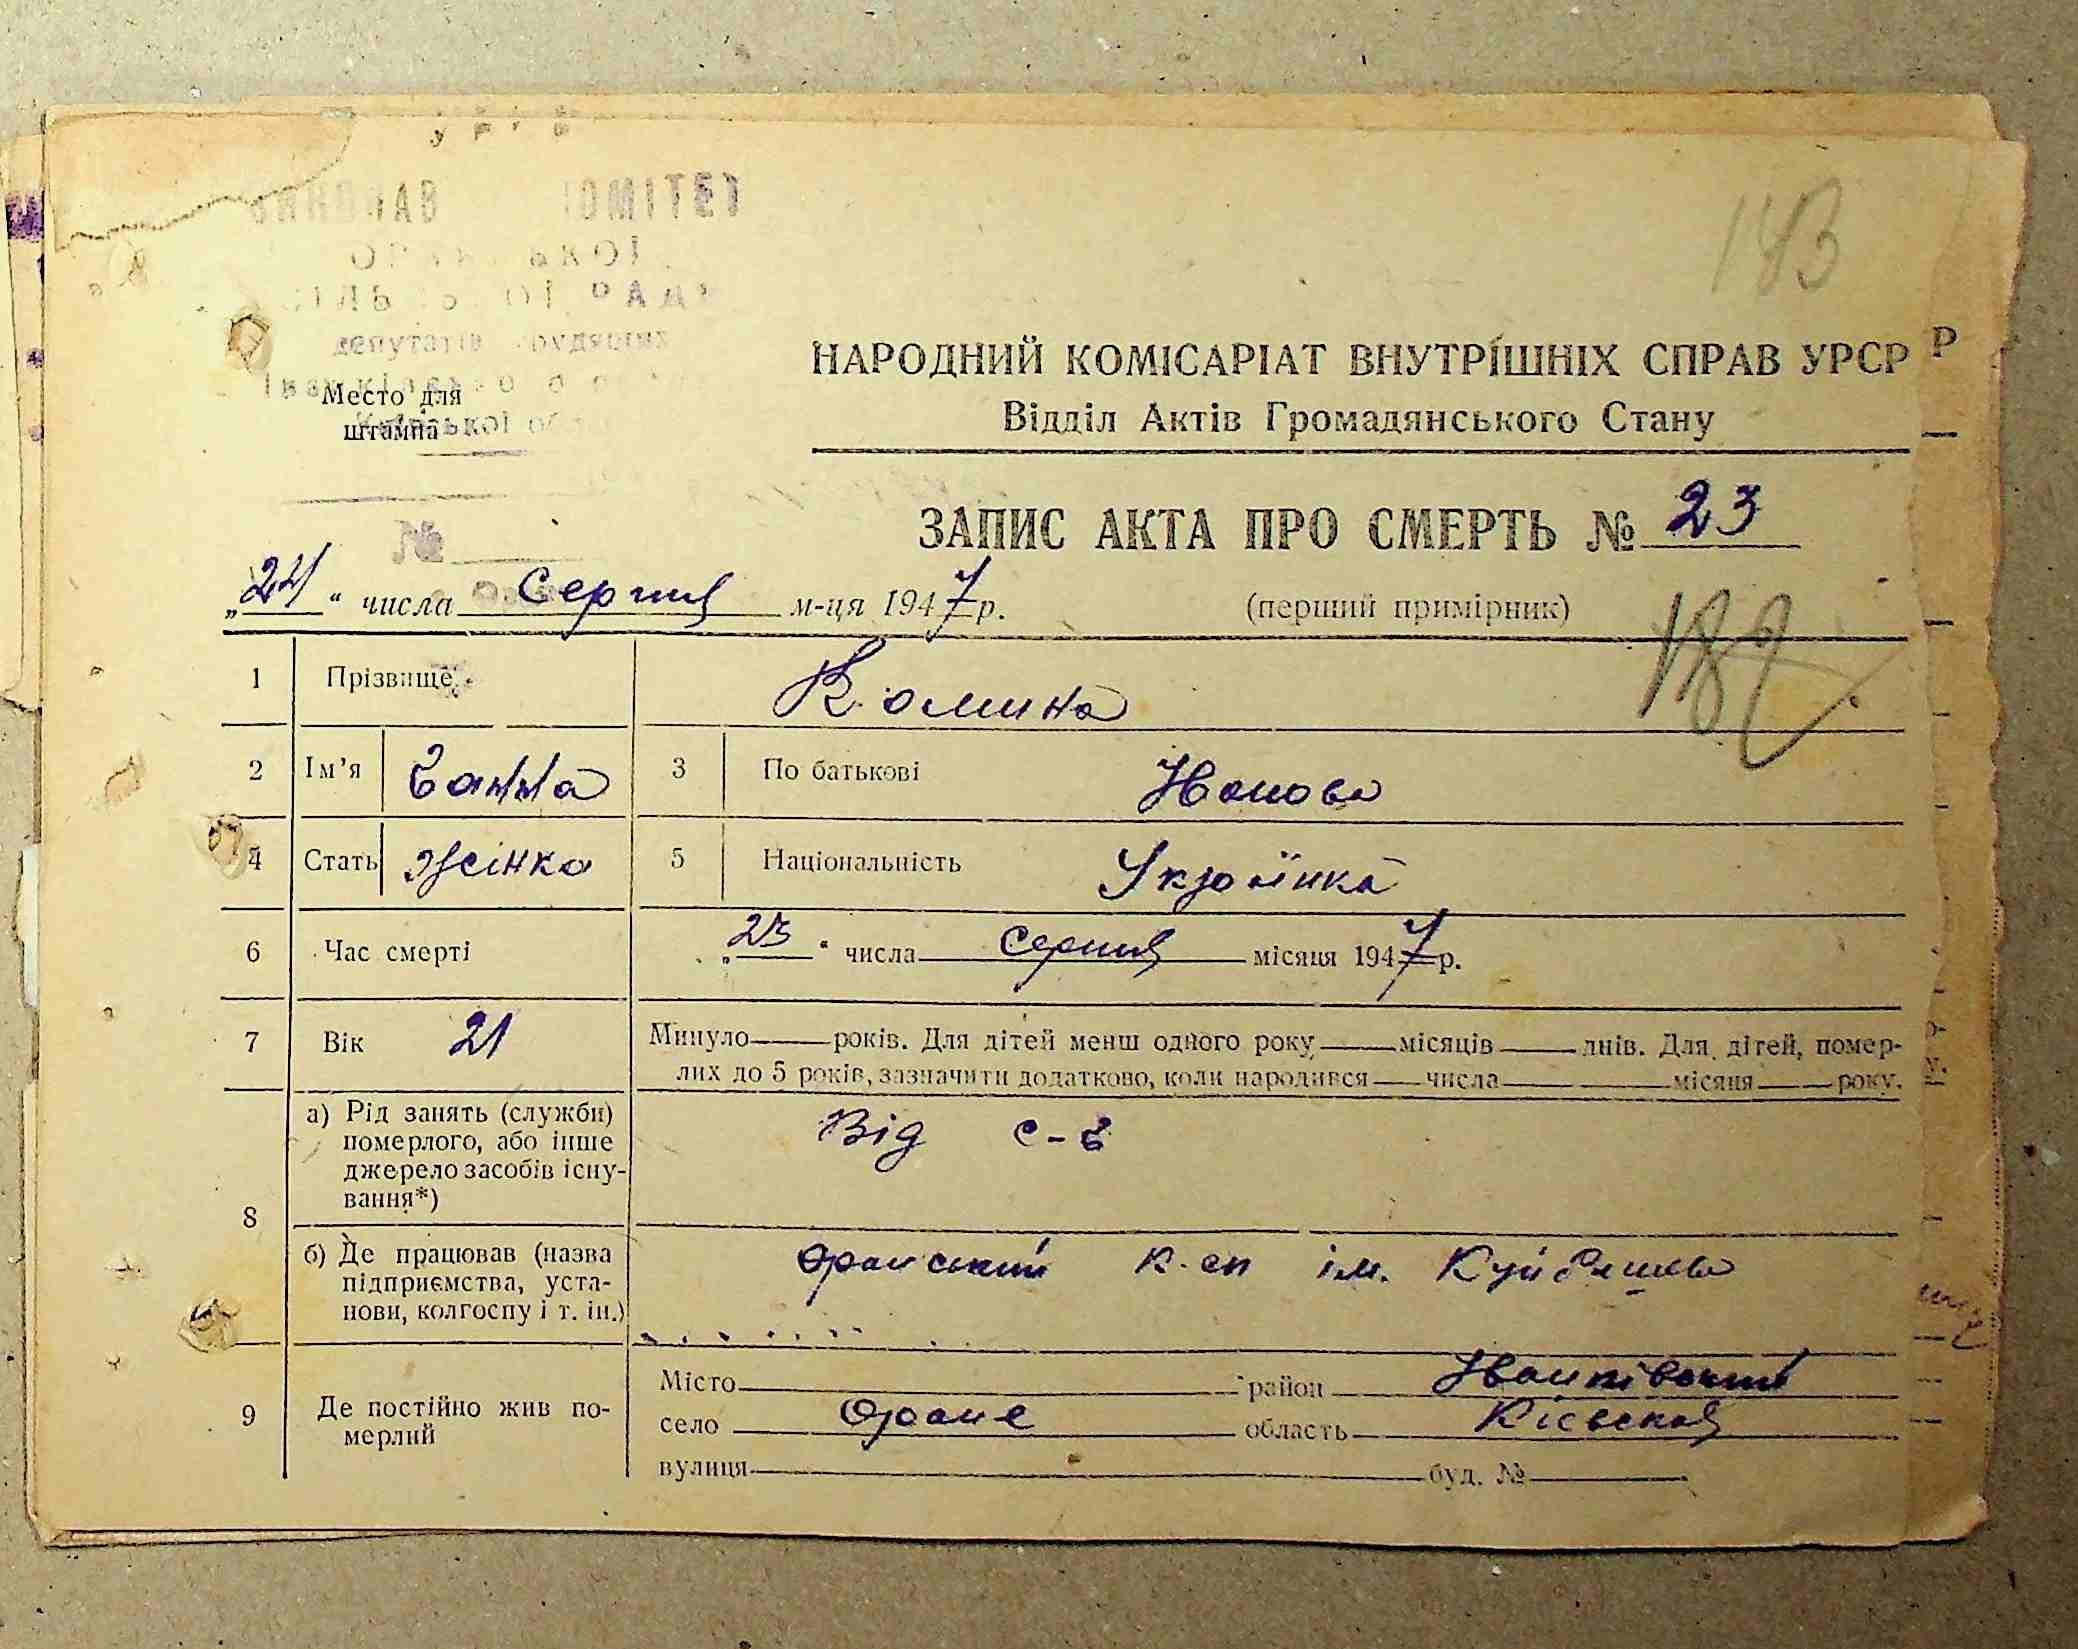 УРСР
ВИКОНАВ КОМІТЕТ
СІЛЬ ОЇ РАД
депутатів трудящих
183
Место для
штампа
НАРОДНИЙ КОМІСАРІАТ ВНУТРІШНІХ СПРАВ УРСР
Відділ Актів Громадянського Стану
ЗАПИС АКТА ПРО СМЕРТЬ № 23
№
„24“ числа Серпня м-ця 1947 р.
(перший примірник)
182
1 Прізвище Комина
2 Ім'я Ганна 3 По батькові
4 Стать жінка 5 Національність Українка
6 Час смерті „23“ числа Серпня місяця 1947 р.
7 Вік 21 Минуло років. Для дітей менш одного року місяців днів. Для дітей, помер-
лих до 5 років, зазначити додатково, коли народився числа місяця року.
8 а) Рід занять (служби)
померлого, або інше
джерело засобів існу-
вання*)
Від с-г
б) Де працював (назва
підприємства, уста-
нови, колгоспу і т. ін.)
Оранський к.сп ім. Куйбишева
9 Де постійно жив по-
мерлий
Місто район Іванківський
село Оране область Кієвская
вулиця буд. №